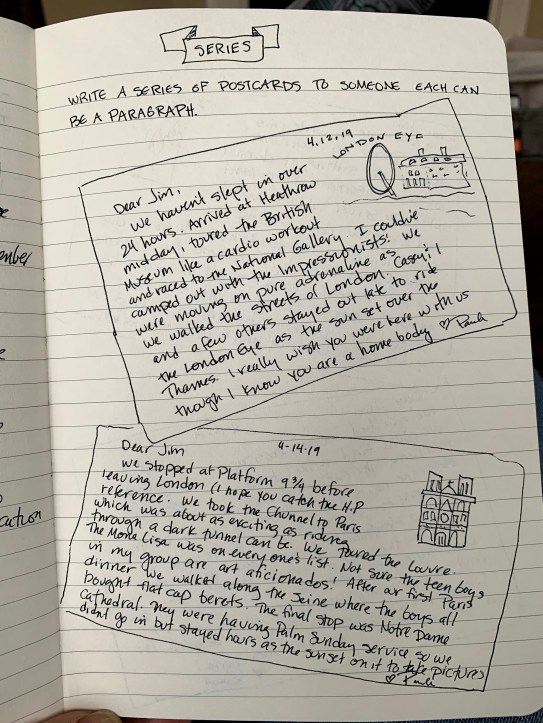 SERIES
WRITE A SERIES OF POSTCARDS TO SOMEONE EACH CAN
BE A PARAGRAPH.
4.12.19
LONDON EYE
Dear Jim,
We havent slept in over
24 hours. Arrived at Heathrow
midday, toured the British
Museum like a cardio workout
and raced to the National Gallery. I couldve
camped out with the Impressionists! We
were moving on pure adrenaline as
we walked the streets of London. Casey, I
and a few others stayed out late to ride
the London Eye as the sun set over the
Thames. I really wish you were here with us
though I know you are a home body ♡ Paula
Dear Jim
4-14-19
We stopped at Platform 9 3/4 before
leaving London (I hope you catch the H.P
reference. We took the Chunnel to Paris
which was about as exciting as riding
through a dark tunnel can be. We toured the Louvre.
The Mona Lisa was on everyone's list. Not sure the teen boys
in my group are art aficionados! After our first Paris
dinner we walked along the Seine where the boys all
bought flat cap berets. The final stop was Notre Dame
Cathedral. They were having Palm Sunday service so we
didnt go in but stayed hours as the sunset on it to take pictures
♡ Paula
ember
cation